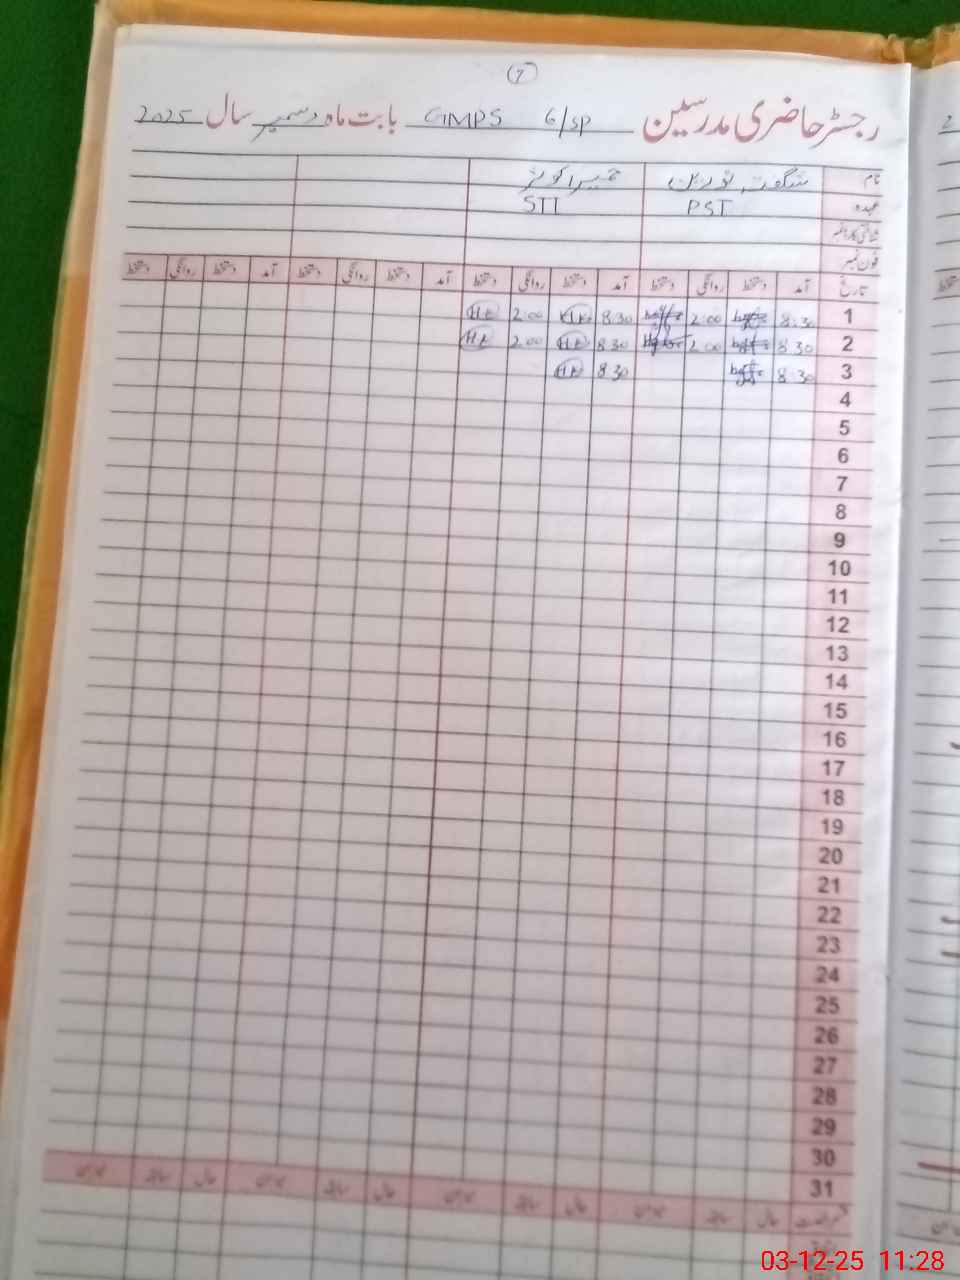 7
رجسٹر حاضری مدرسین GMPS 6/SP بابت ماہ دسمبر سال 2025
نام شگفتہ نورین حمیرا کوثر
عہدہ PST STI
شناختی کارڈ نمبر
فون نمبر
تاریخ آمد دستخط روانگی دستخط آمد دستخط روانگی دستخط آمد دستخط روانگی دستخط آمد دستخط روانگی دستخط
1 8:30 2:00 8:30 2:00
2 8:30 2:00 8:30 2:00
3 8:30 8:30
4
5
6
7
8
9
10
11
12
13
14
15
16
17
18
19
20
21
22
23
24
25
26
27
28
29
30
31
حال سابقہ میزان حال سابقہ میزان حال سابقہ میزان حال سابقہ میزان
03-12-25 11:28